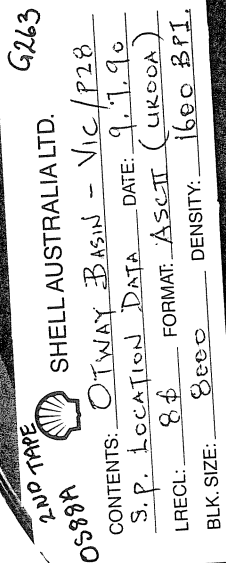 G263
2ND TAPE
OS88A
SHELL AUSTRALIA LTD.
CONTENTS: OTWAY BASIN - VIC/P28
S.P. LOCATION DATA DATE: 9.7.90
LRECL: 80 FORMAT: ASCII (UKOOA)
BLK. SIZE: 8000 DENSITY: 1600 BPI.